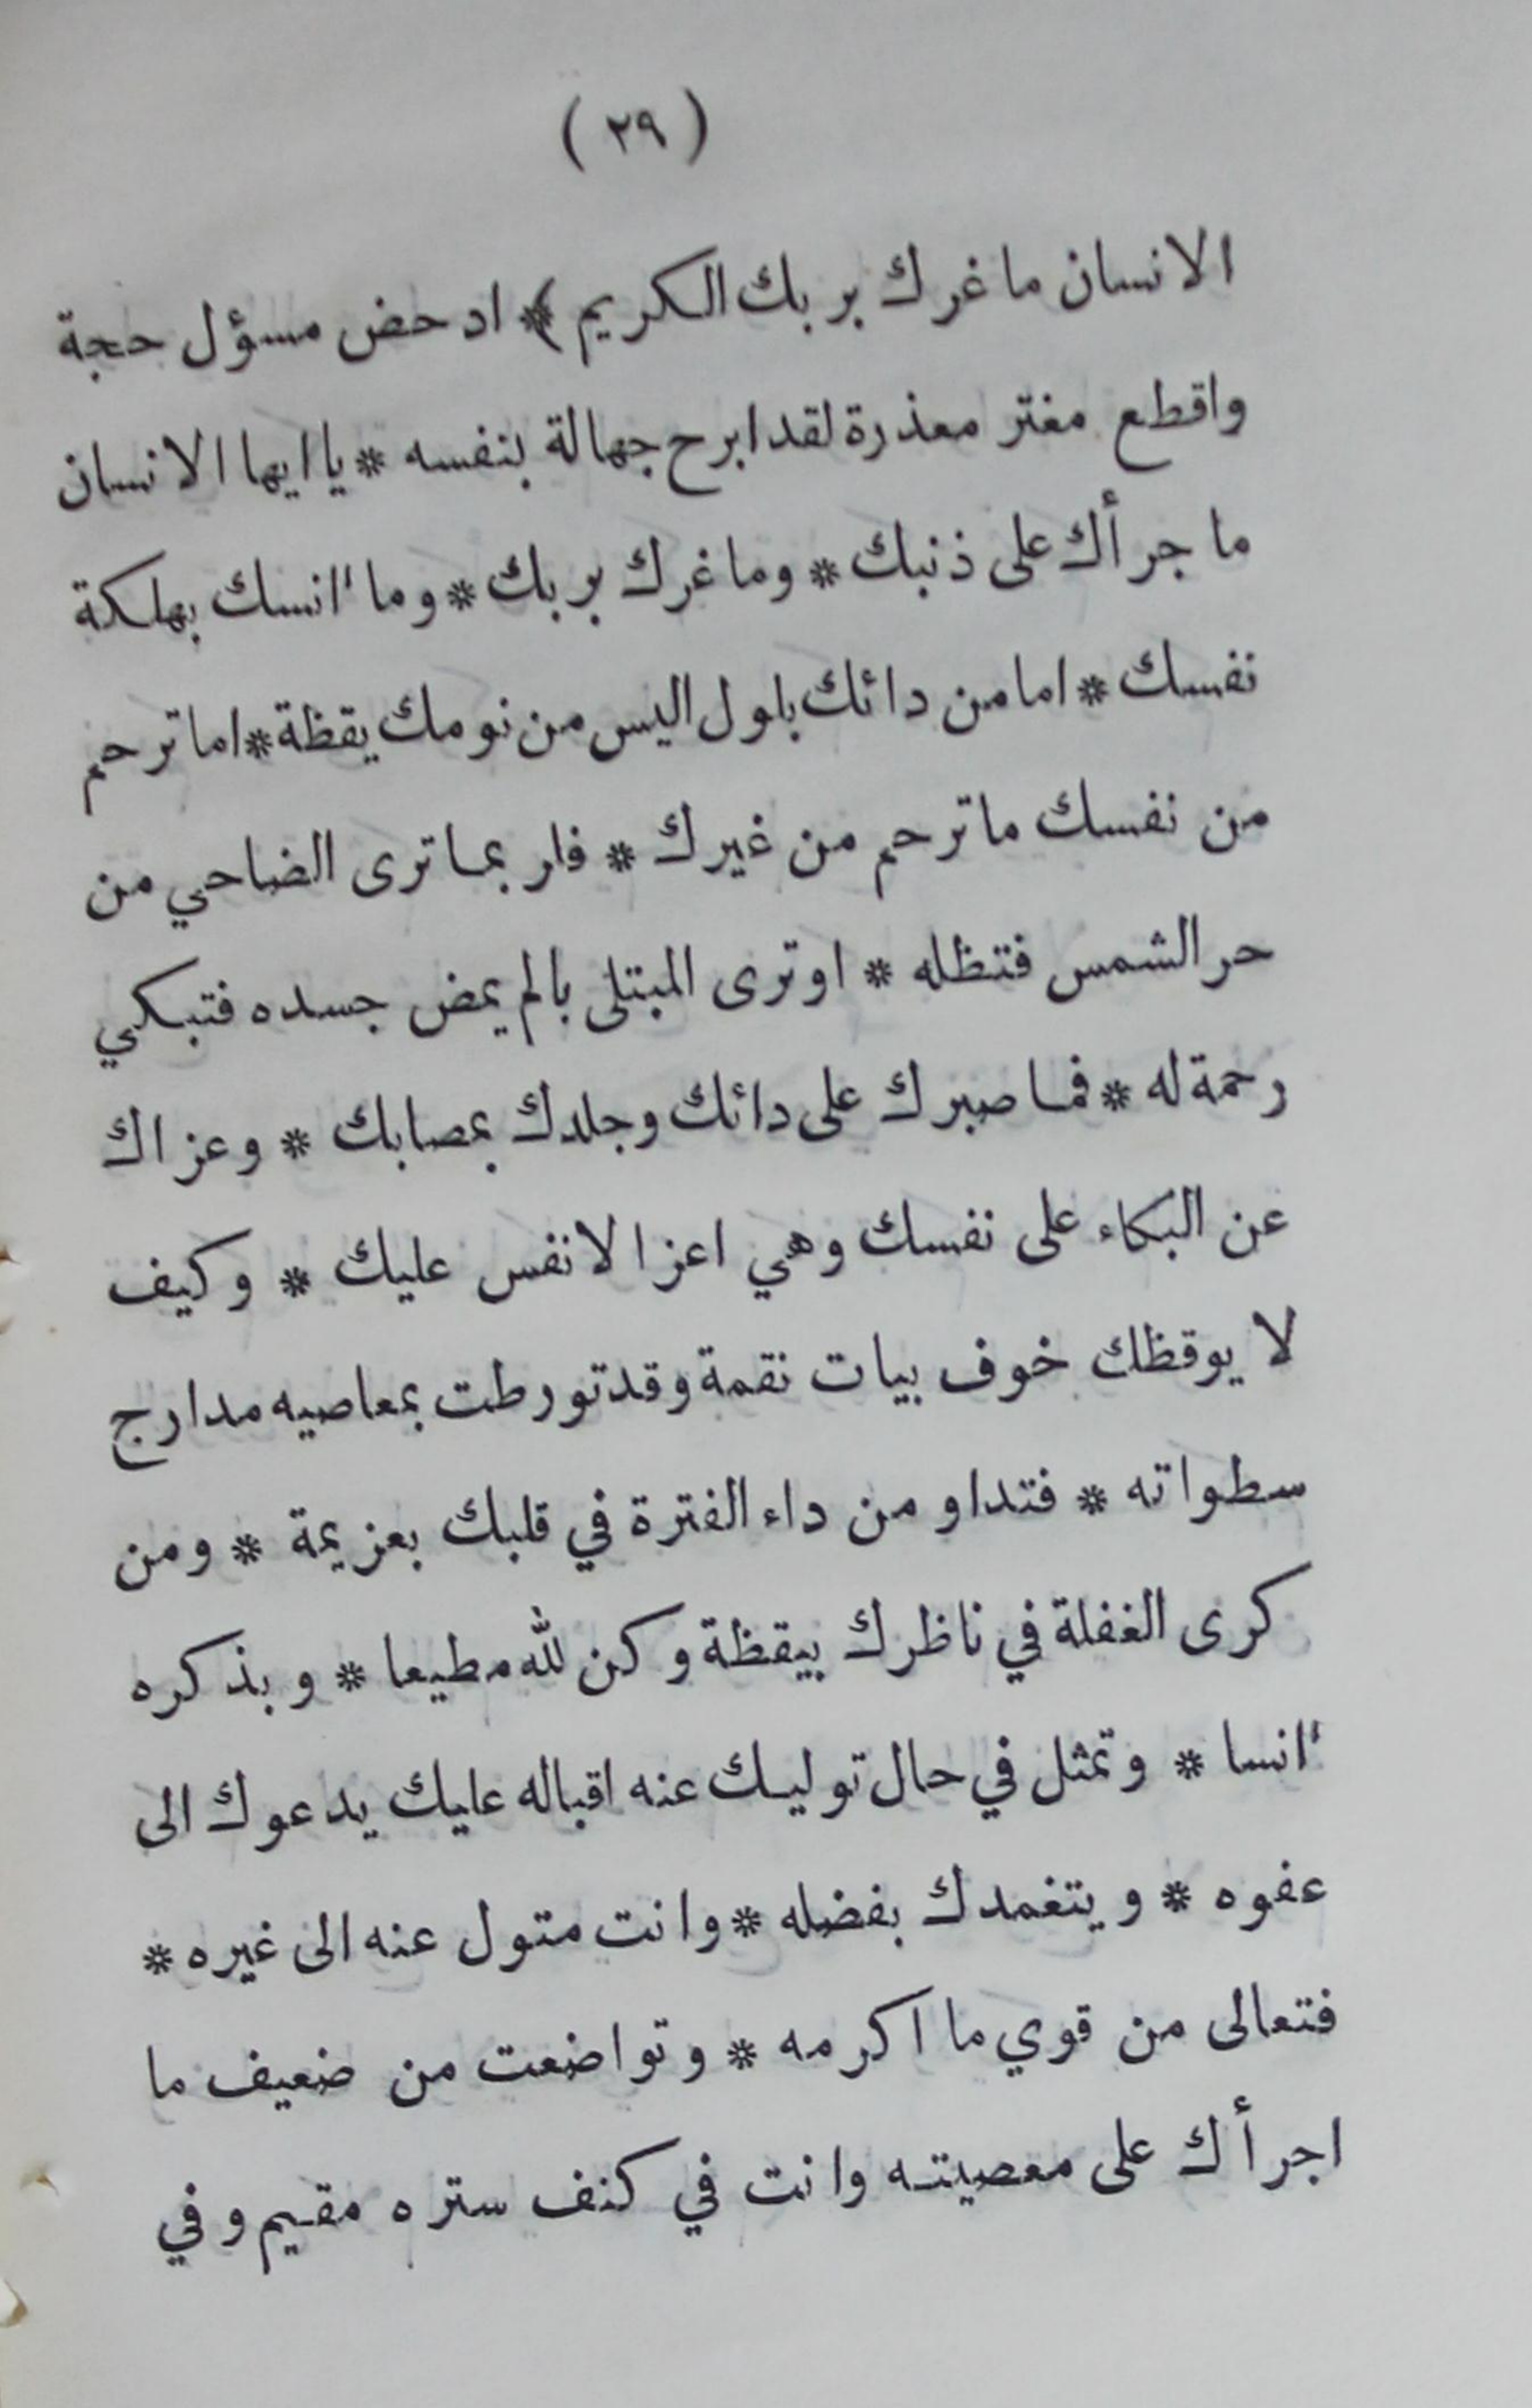 ( ٢٩ )
الانسان ما غرك بربك الكريم ﴾ * ادحض مسؤل حجة
واقطع مغتر معذرة لقد ابرح جهالة بنفسه * يا ايها الانسان
ما جرأك على ذنبك * وما غرك بربك * وما انسك بهلكة
نفسك * اما من دائك بلول اليس من نومك يقظة * اما ترحم
من نفسك ما ترحم من غيرك * فلربما ترى الضاحي من
حر الشمس فتظله * او ترى المبتلى بالم يمض جسده فتبكي
رحمة له * فما صبرك على دائك وجلدك بمصابك * وعزاك
عن البكاء على نفسك وهي اعز الانفس عليك * وكيف
لا يوقظك خوف بيات نقمة وقد تورطت بمعاصيه مدارج
سطواته * فتداو من داء الفترة في قلبك بعزيمة * ومن
كرى الغفلة في ناظرك بيقظة وكن لله مطيعا * وبذكره
انسا * وتمثل في حال توليك عنه اقباله عليك يدعوك الى
عفوه * ويتغمدك بفضله * وانت متول عنه الى غيره *
فتعالى من قوي ما اكرمه * وتواضعت من ضعيف ما
اجرأك على معصيته وانت في كنف ستره مقيم وفي